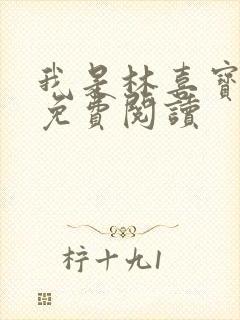 我是林喜寶
免費閱讀
柠十九1